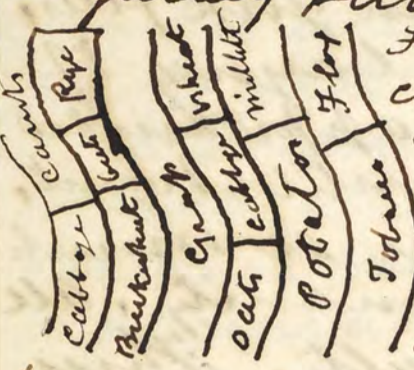 Carrots
Cabbage
Rye
Buckwheat
Grass
Wheat
Cabbage
Oats
millet
Potatos
Flax
Tobacco